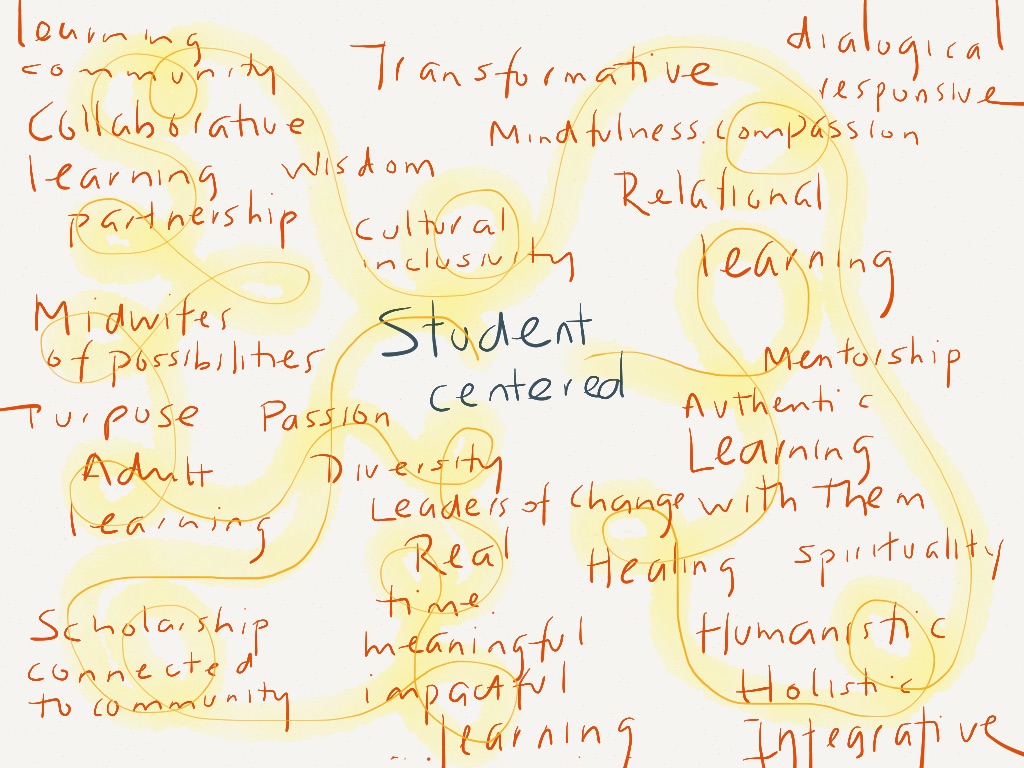 learning
community
Collaborative
learning
partnership
Wisdom
Transformative
dialogical
responsive
Mindfulness.compassion
Relational
learning
cultural
inclusivity
Student
centered
Midwifes
of possibilities
Purpose Passion
Adult
learning
Diversity
Mentorship
Authentic
Learning
Leaders of change with them
Real
time.
meaningful
impactful
... learning
Healing
spirituality
Scholarship
connected
to community
Humanistic
Holistic
Integrative